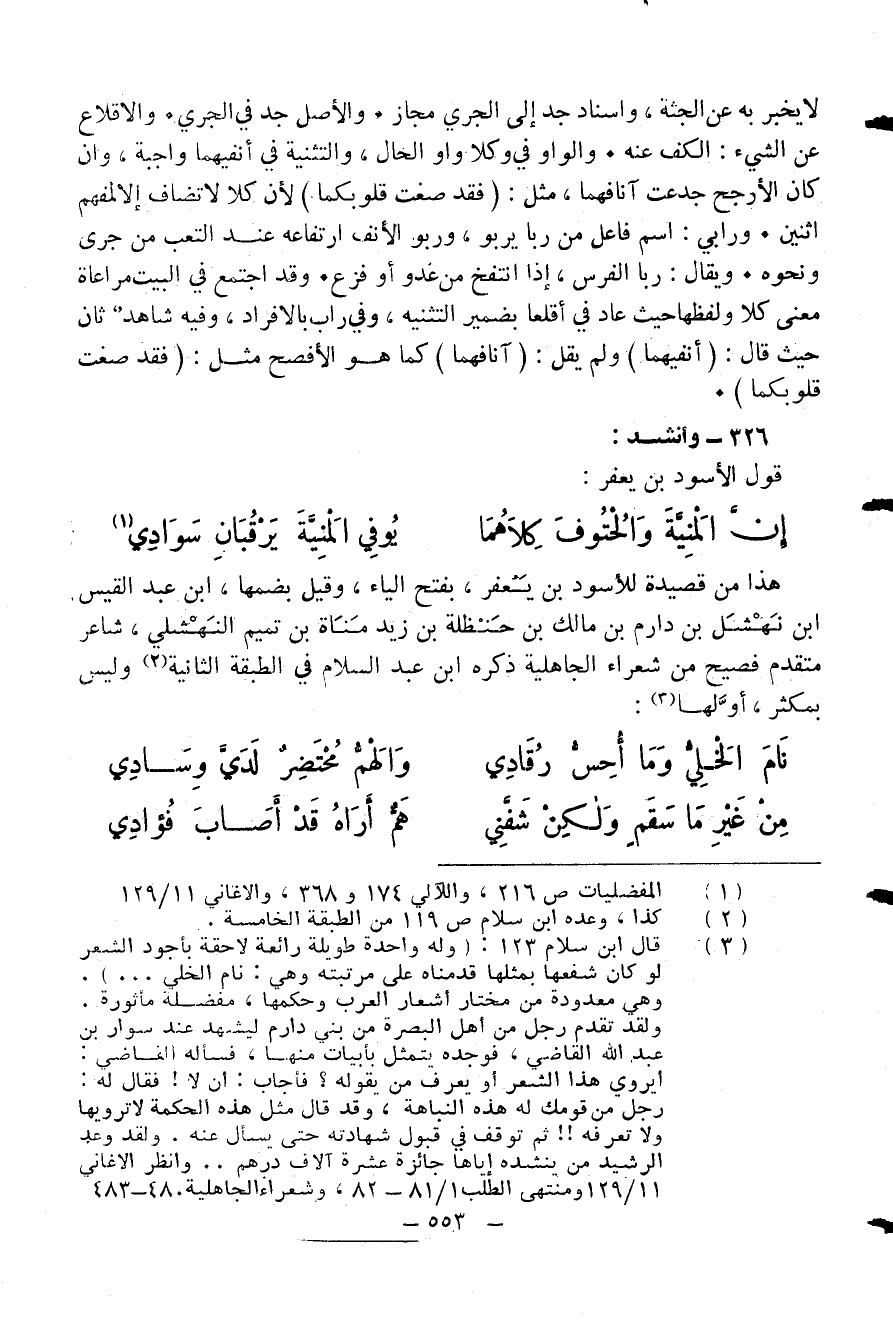 لايخبر به عن الجثة ، واسناد جد إلى الجري مجاز ٠ والأصل جد في الجري٠ والاقلاع
عن الشيء : الكف عنه ٠ والواو في وكلا واو الحال ، والتثنية في أنفيهما واجبة ، وان
كان الأرجح جدعت آنافهما ، مثل : ( فقد صغت قلوبكما ) لأن كلا لاتضاف إلا لمفهم
اثنين ٠ ورابي : اسم فاعل من ربا يربو ، وربو الأنف ارتفاعه عنــد التعب من جرى
ونحوه ٠ ويقال : ربا الفرس ، إذا انتفخ من عَدو أو فزع٠ وقد اجتمع في البيت مراعاة
معنى كلا ولفظها حيث عاد في أقلعا بضمير التثنيه ، وفي راب بالافراد ، وفيه شاهد ثان
حيث قال : ( أنفيهما ) ولم يقل : ( آنافهما ) كما هــو الأفصح مثــل : ( فقد صغت
قلوبكما ) ٠
٣٢٦ ــ وأنشــد :
قول الأسود بن يعفر :
إِنَّ الْمَنِيَّةَ وَالْحُتُوفَ كِلاَهُمَا يُوفِي الْمَنِيَّةَ يَرْقُبَانِ سَوَادِي(١)
هذا من قصيدة للأسود بن يَعفر ، بفتح الياء ، وقيل بضمها ، ابن عبد القيس
ابن نَهْشَل بن دارم بن مالك بن حَنْظلة بن زيد مَنَاة بن تميم النَهْشلي ، شاعر
متقدم فصيح من شعراء الجاهلية ذكره ابن عبد السلام في الطبقة الثانية(٢) وليس
بمكثر ، أوَّلهــا(٣) :
نَامَ الْخَلِيُّ وَمَا أُحِسُّ رُقَادِي وَالْهَمُّ مُحْتَضِرٌ لَدَيَّ وِسَــادِي
مِنْ غَيْرِ مَا سَقَمٍ وَلٰكِنْ شَفَّنِي هَمٌّ أَرَاهُ قَدْ أَصَــابَ فُؤَادِي
(١) المفضليات ص ٢١٦ ، واللآلي ١٧٤ و ٣٦٨ ، والاغاني ١٢٩/١١
(٢) كذا ، وعده ابن سلام ص ١١٩ من الطبقة الخامسة .
(٣) قال ابن سلام ١٢٣ : ( وله واحدة طويلة رائعة لاحقة بأجود الشعر
لو كان شفعها بمثلها قدمناه على مرتبته وهي : نام الخلي ... ) .
وهي معدودة من مختار أشعار العرب وحكمها ، مفضــلة مأثورة .
ولقد تقدم رجل من أهل البصرة من بني دارم ليشهد عند سوار بن
عبد الله القاضي ، فوجده يتمثل بأبيات منهــا ، فسأله القــاضي :
أيروي هذا الشعر أو يعرف من يقوله ؟ فأجاب : أن لا ! فقال له :
رجل من قومك له هذه النباهة ، وقد قال مثل هذه الحكمة لاترويها
ولا تعرفه !! ثم توقف في قبول شهادته حتى يسأل عنه . ولقد وعد
الرشيد من ينشده إياها جائزة عشرة آلاف درهم .. وانظر الاغاني
١٢٩/١١ ومنتهى الطلب ٨١/١ ــ ٨٢ ، وشعراء الجاهلية ٤٨٠ــ٤٨٣
ــ ٥٥٣ ــ